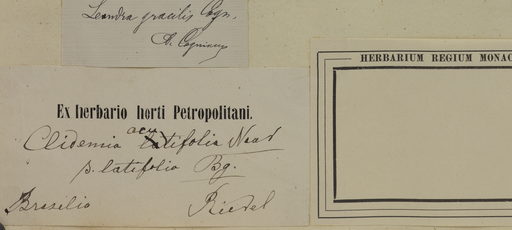 Leandra gracilis Cogn.
A. Cogniaux
HERBARIUM REGIUM MONAC
Ex herbario horti Petropolitani.
Clidemia acutifolia Naud
β. latifolia Bg.
Brasilia
Riedel